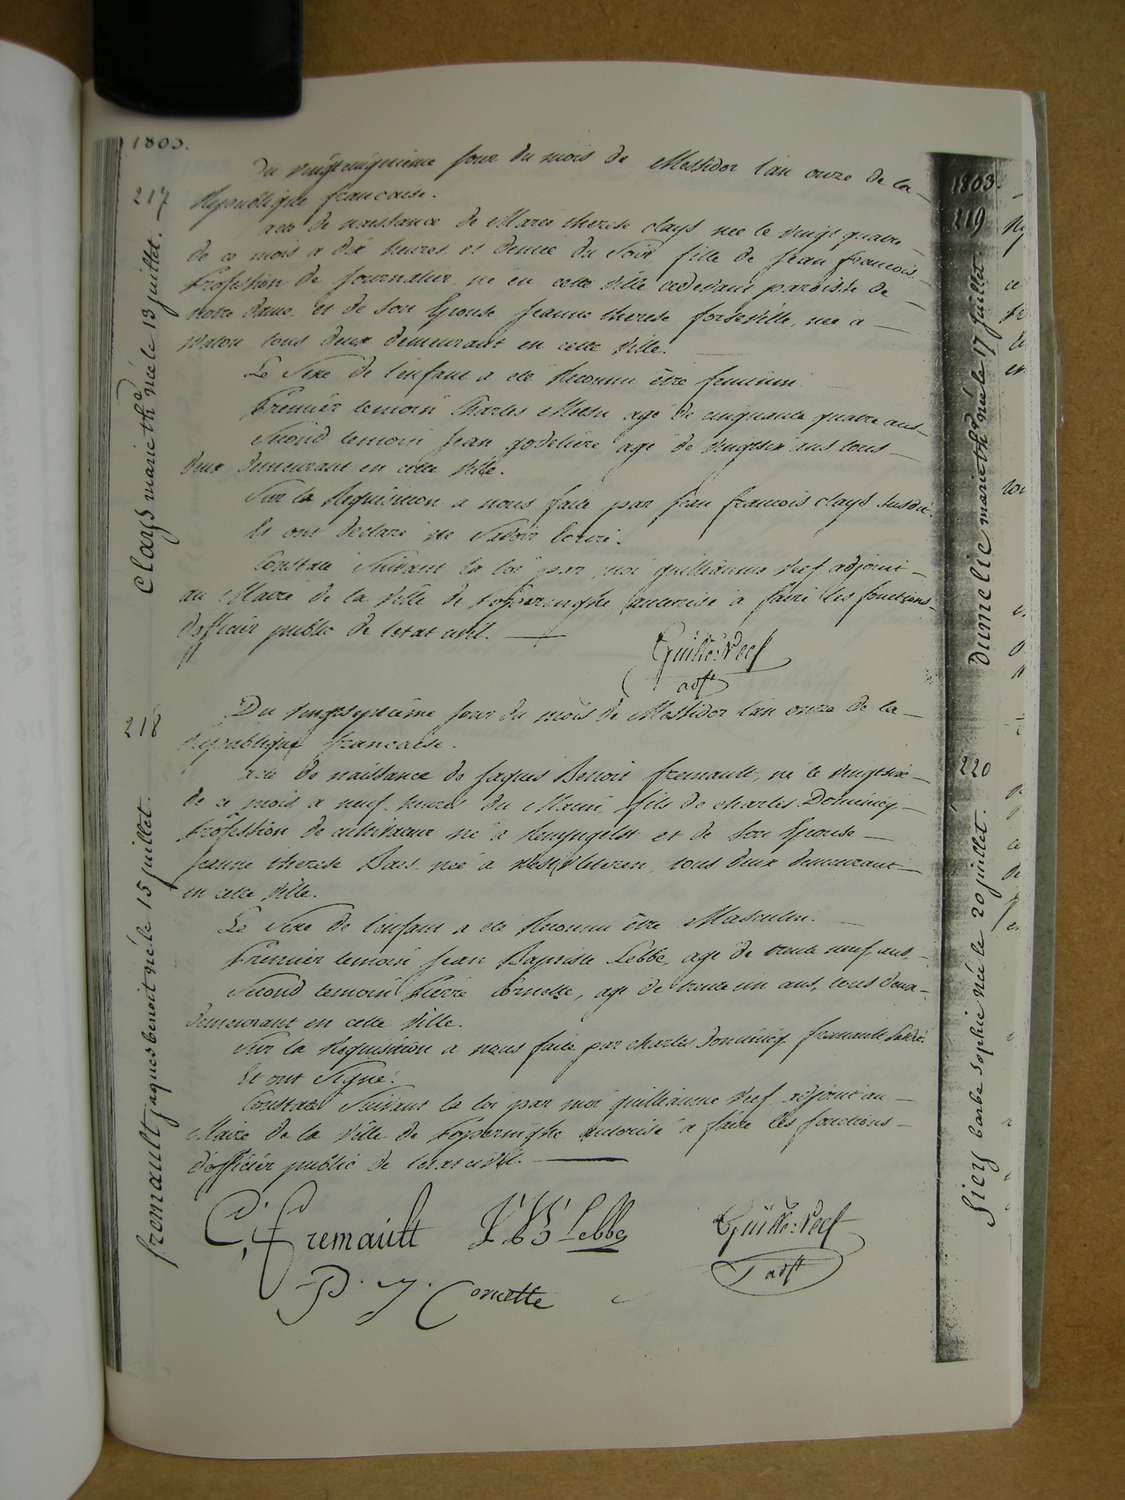 1803.
217
Clays marie thse née le 13 juillet.
Du vingt cinquieme jour du mois de Messidor l'an onze de la
Republique francaise.
acte de naissance de Marie therese clays née le vingt quatre
de ce mois a dix heures et demie du soir fille de jean francois
Profession de journalier né en cette ville cidevant paroisse de
notre dame, et de son Epouse jeanne therese née a
tous deux demeurant en cette ville.
Le Sexe de l'enfant a été Reconnu être feminin.
Premier temoin Charles agé de cinquante quatre ans
Second temoin jean godelière agé de vingtsix ans tous
deux demeurant en cette ville.
Sur la Requisition a nous faite par jean francois clays susdit
et ont declaré ne savoir Ecrire.
Constaté Suivant la loi par moi guilliaume Reef adjoint
au Maire de la ville de Poperinghe autorisé a faire les fonctions
d'officier public de l'etat civil.
Guille: Reef
adjt
218
fremault jaques benoit né le 15 juillet.
Du vingtseptième jour du mois de Messidor l'an onze de la
republique francaise.
acte de naissance de jaques Benoit fremault, né le vingtsix
de ce mois a neuf heures du Matin fils de charles Dominicq
Profession de cultivateur né a Reninghelst et de son Epouse
jeanne therese née a Westvleteren, tous deux demeurant
en cette ville.
Le Sexe de l'enfant a été Reconnu être Masculin.
Premier temoin jean Baptiste Lebbe, agé de trente neuf ans,
Second temoin Pierre Cornette, agé de trente un ans, tous deux
demeurant en cette ville.
Sur la Requisition a nous faite par charles Dominicq fremault susdit
Et ont Signé.
Constaté Suivant la loi par moi guilliaume Reef adjoint au
Maire de la ville de Poperinghe autorisé a faire les fonctions
d'officier public de l'etat civil.
C, fremault J. B. Lebbe Guille: Reef
adjt
P. J. Cornette
1803.
219
Dumelie marie thse née le 17 juillet
220
Sicy barbe sophie née le 20 juillet.